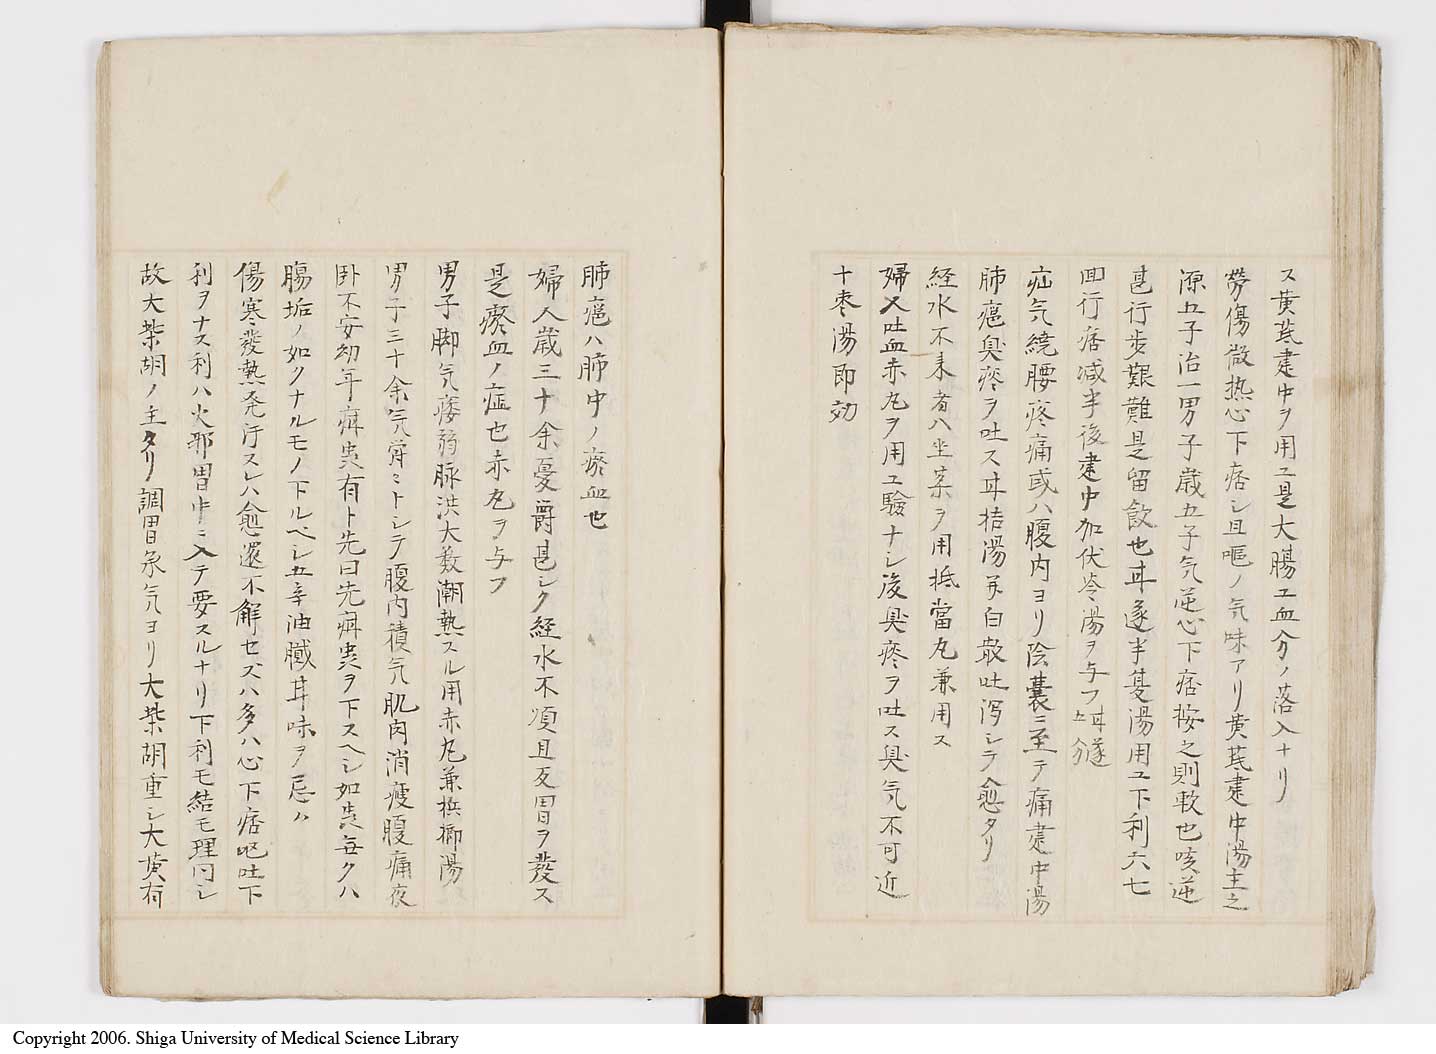 ス黄芪建中ヲ用ユ是大腸ユ血分ノ落入ナリ
労傷微热心下痞シ且嘔ノ気味アリ黄芪建中湯主之
源五子治一男子歳五子気逆心下痞按之則軟也咳逆
甚行歩艱難是留飲也甘遂半夏湯用ユ下利六七
回行痞减半後建中加伏苓湯ヲ与フ
疝気繞腰疼痛或ハ腹内ヨリ陰嚢ニ至テ痛建中湯
肺癰臭痰ヲ吐ス甘桔湯并白散吐瀉シテ愈タリ
経水不来者ハ坐薬ヲ用抵當丸兼用ス
婦人吐血赤丸ヲ用ユ驗ナシ後臭痰ヲ吐ス臭気不可近
十枣湯即効
肺癰ハ肺中ノ瘀血也
婦人歳三十余憂爵甚シク経水不順且反胃ヲ發ス
是瘀血ノ症也赤丸ヲ与フ
男子脚気痿弱脉洪大数潮熱スル用赤丸兼梹榔湯
男子三十余気欝ミトシテ腹内積気肌肉消瘦腹痛夜
卧不安幼年痳蚩有ト先曰先痳蚩ヲ下スヘシ如蚩毎クハ
腸垢ノ如クナルモノ下ルベシ五辛油膩甘味ヲ忌ハ
傷寒發熱発汗スレハ愈還不解セズハ多ハ心下痞呕吐下
利ヲナス利ハ火邪胃中ニ入テ要スルナリ下利モ結モ理同シ
故大柴胡ノ主タリ調胃承気ヨリ大柴胡重シ大黄有